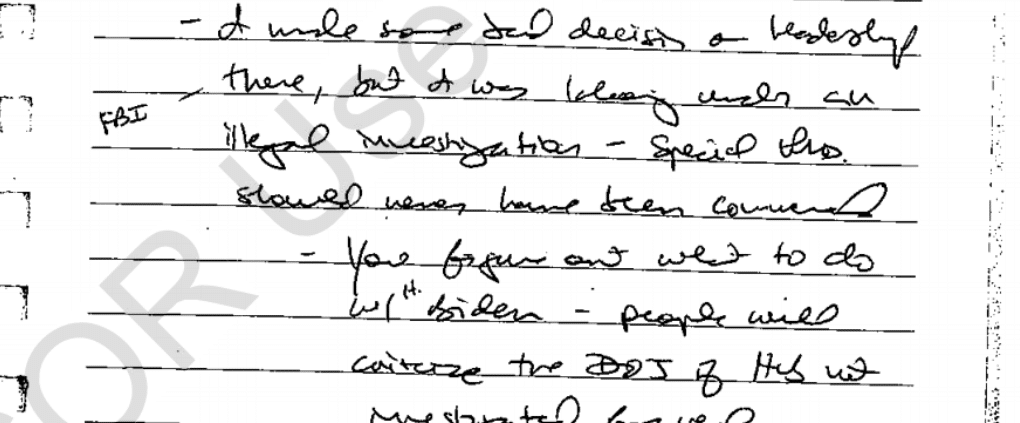 - I made some bad decision on leadership
there, but I was laboring under an
FBI
illegal investigation - Special Pros.
should never have been commenced
- You figure out what to do
w/ H. Biden - people will
criticize the DOJ if he's not
investigated for real
FOR Use